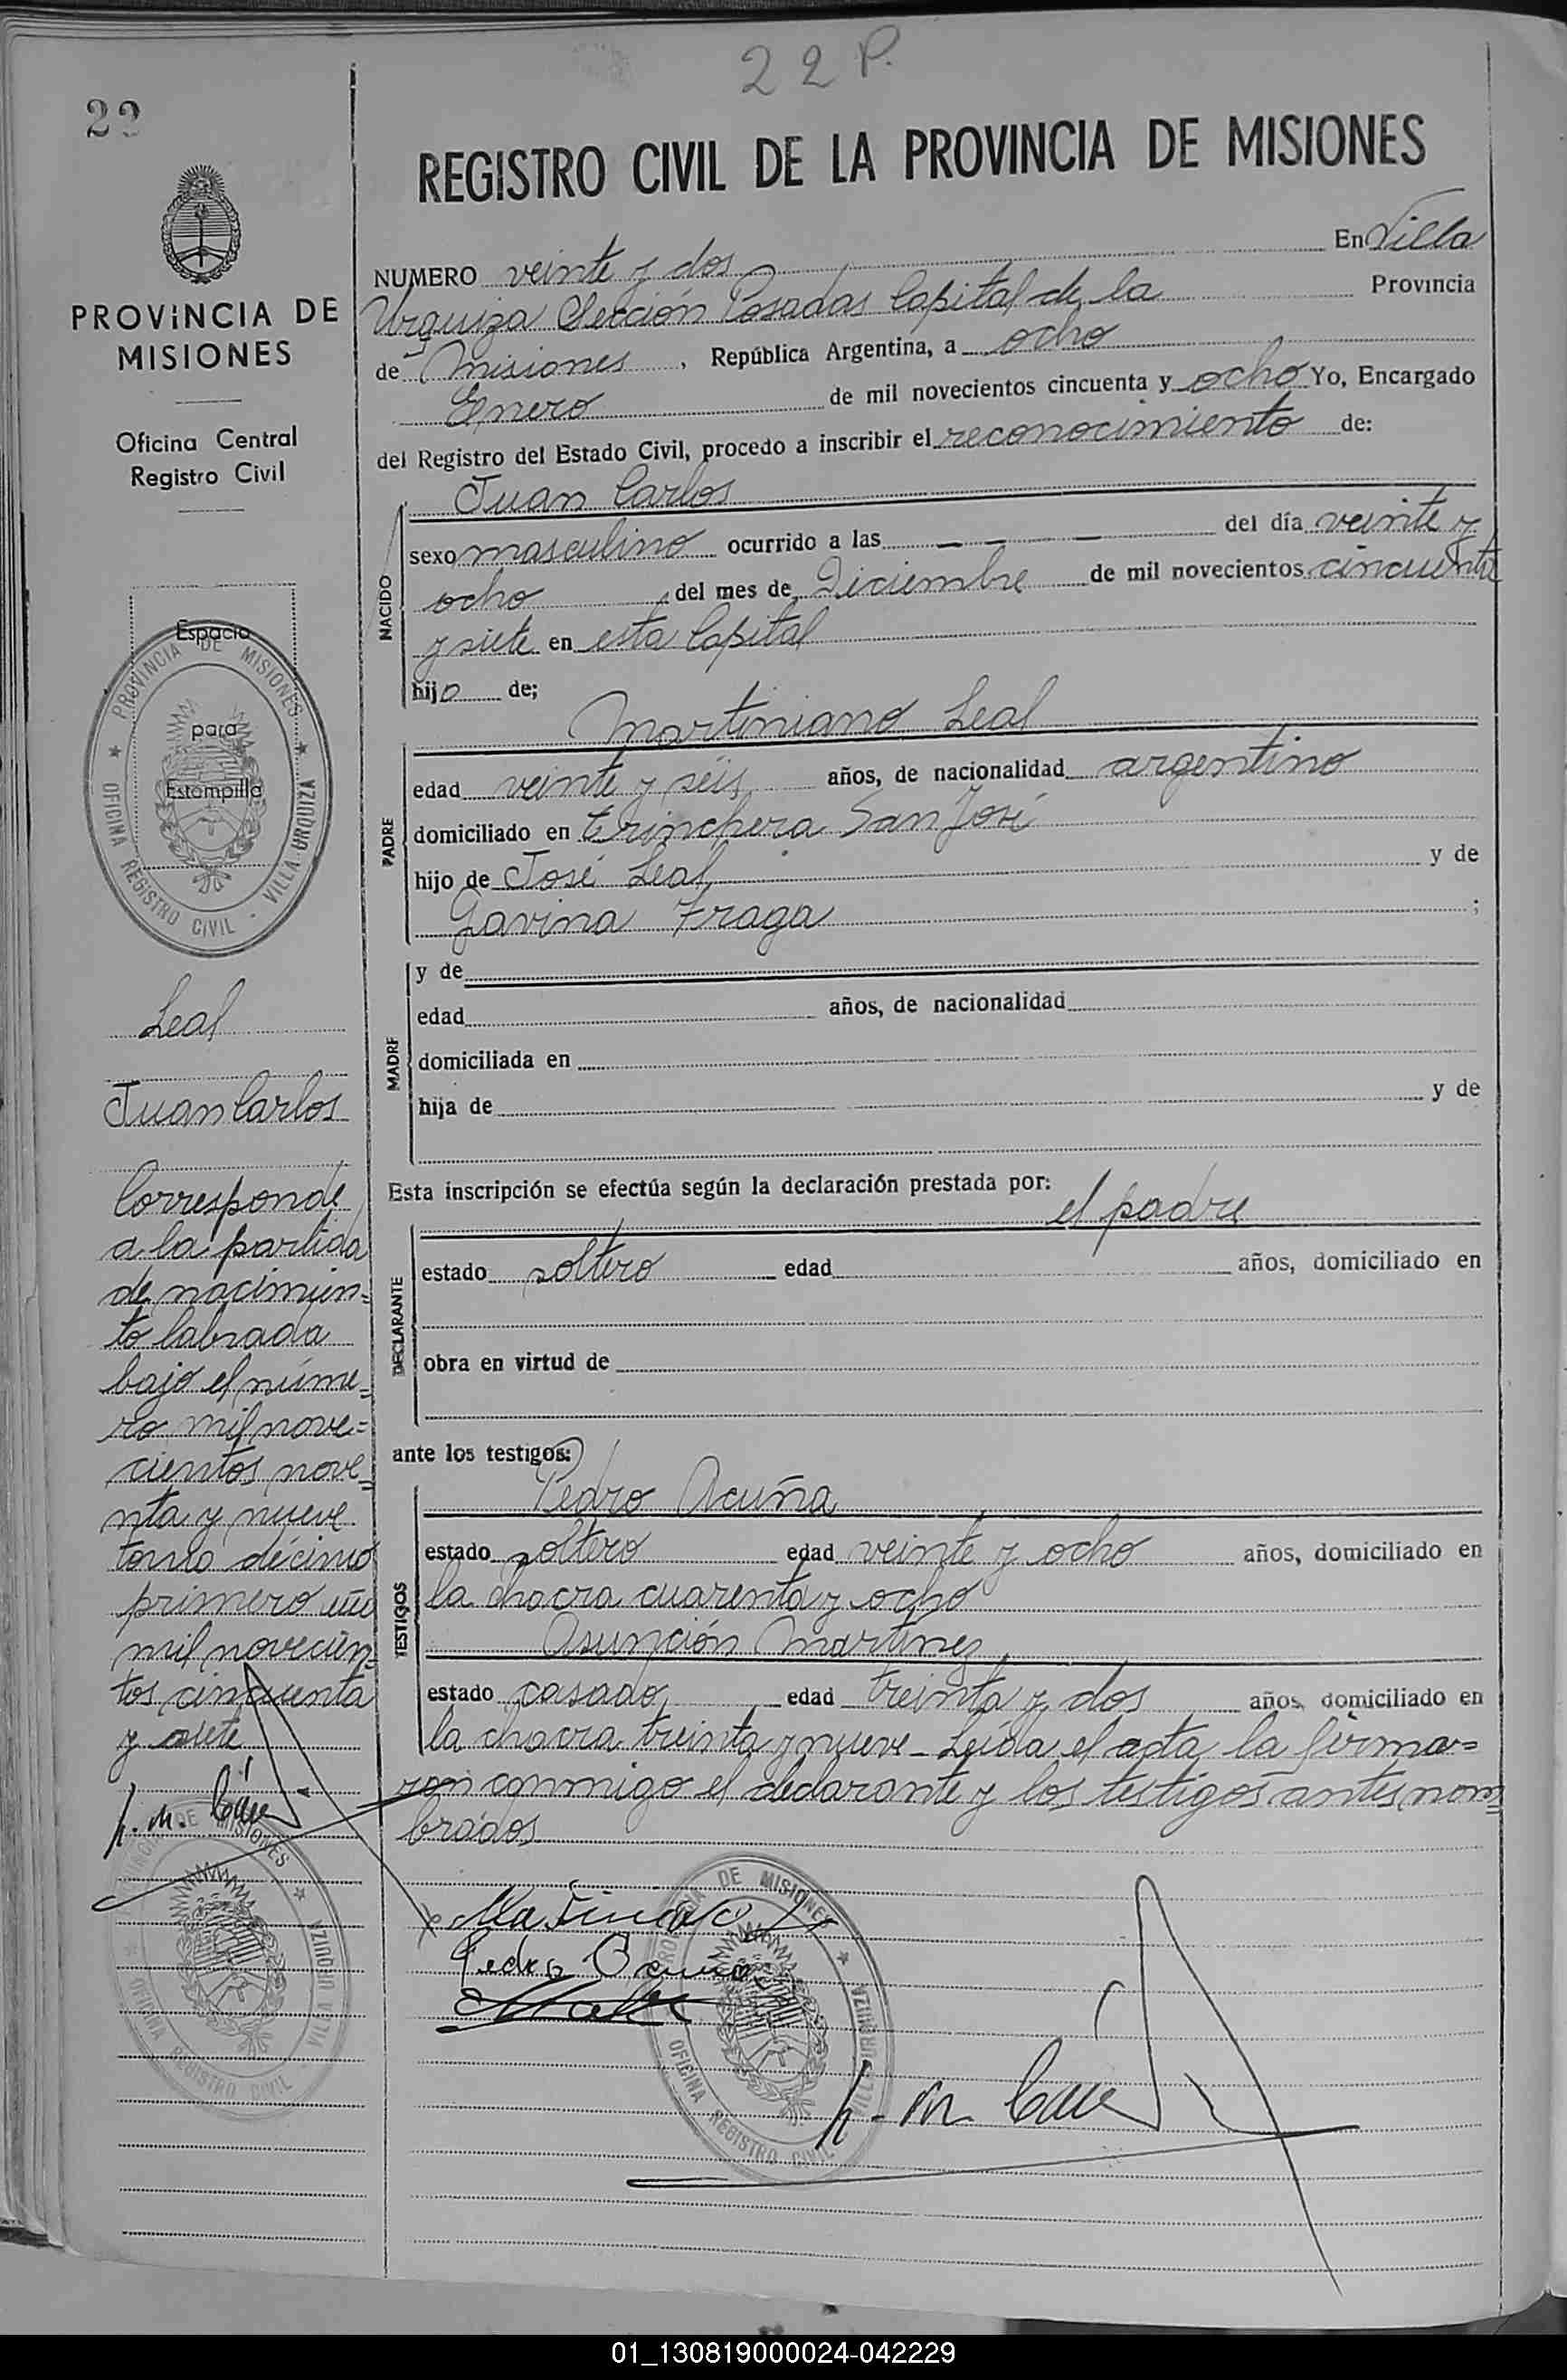 22 P.
22
REGISTRO CIVIL DE LA PROVINCIA DE MISIONES
PROVINCIA DE
MISIONES
Oficina Central
Registro Civil
Espacio
para
Estampilla
PROVINCIA DE MISIONES
OFICINA REGISTRO CIVIL - VILLA URQUIZA
Leal
Juan Carlos
Corresponde
a la partida
de nacimien=
to labrada
bajo el núme=
ro mil nove=
cientos nove=
nta y nueve
tomo décimo
primero año
mil novecien=
tos cincuenta
y siete
NUMERO veinte y dos En Villa
Urquiza Sección Posadas Capital de la Provincia
de Misiones, República Argentina, a ocho
Enero de mil novecientos cincuenta y ocho Yo, Encargado
del Registro del Estado Civil, procedo a inscribir el reconocimiento de:
NACIDO
Juan Carlos
sexo masculino ocurrido a las — — — del día veinte y
ocho del mes de Diciembre de mil novecientos cincuenta
y siete en esta Capital
hijo de;
PADRE
Martiniano Leal
edad veinte y seis años, de nacionalidad argentino
domiciliado en trinchera San José
hijo de José Leal y de
Gavina Fraga ;
MADRE
y de
edad años, de nacionalidad
domiciliada en
hija de y de
Esta inscripción se efectúa según la declaración prestada por:
el padre
DECLARANTE
estado soltero edad años, domiciliado en
obra en virtud de
ante los testigos:
TESTIGOS
Pedro Acuña
estado soltero edad veinte y ocho años, domiciliado en
la chacra cuarenta y ocho
Asunción Martinez
estado casado edad treinta y dos años, domiciliado en
la chacra treinta y nueve - Leída el acta la firma=
ron conmigo el declarante y los testigos antes nom=
brados
Pedro Acuña
PROVINCIA DE MISIONES
OFICINA REGISTRO CIVIL - VILLA URQUIZA
01_130819000024-042229